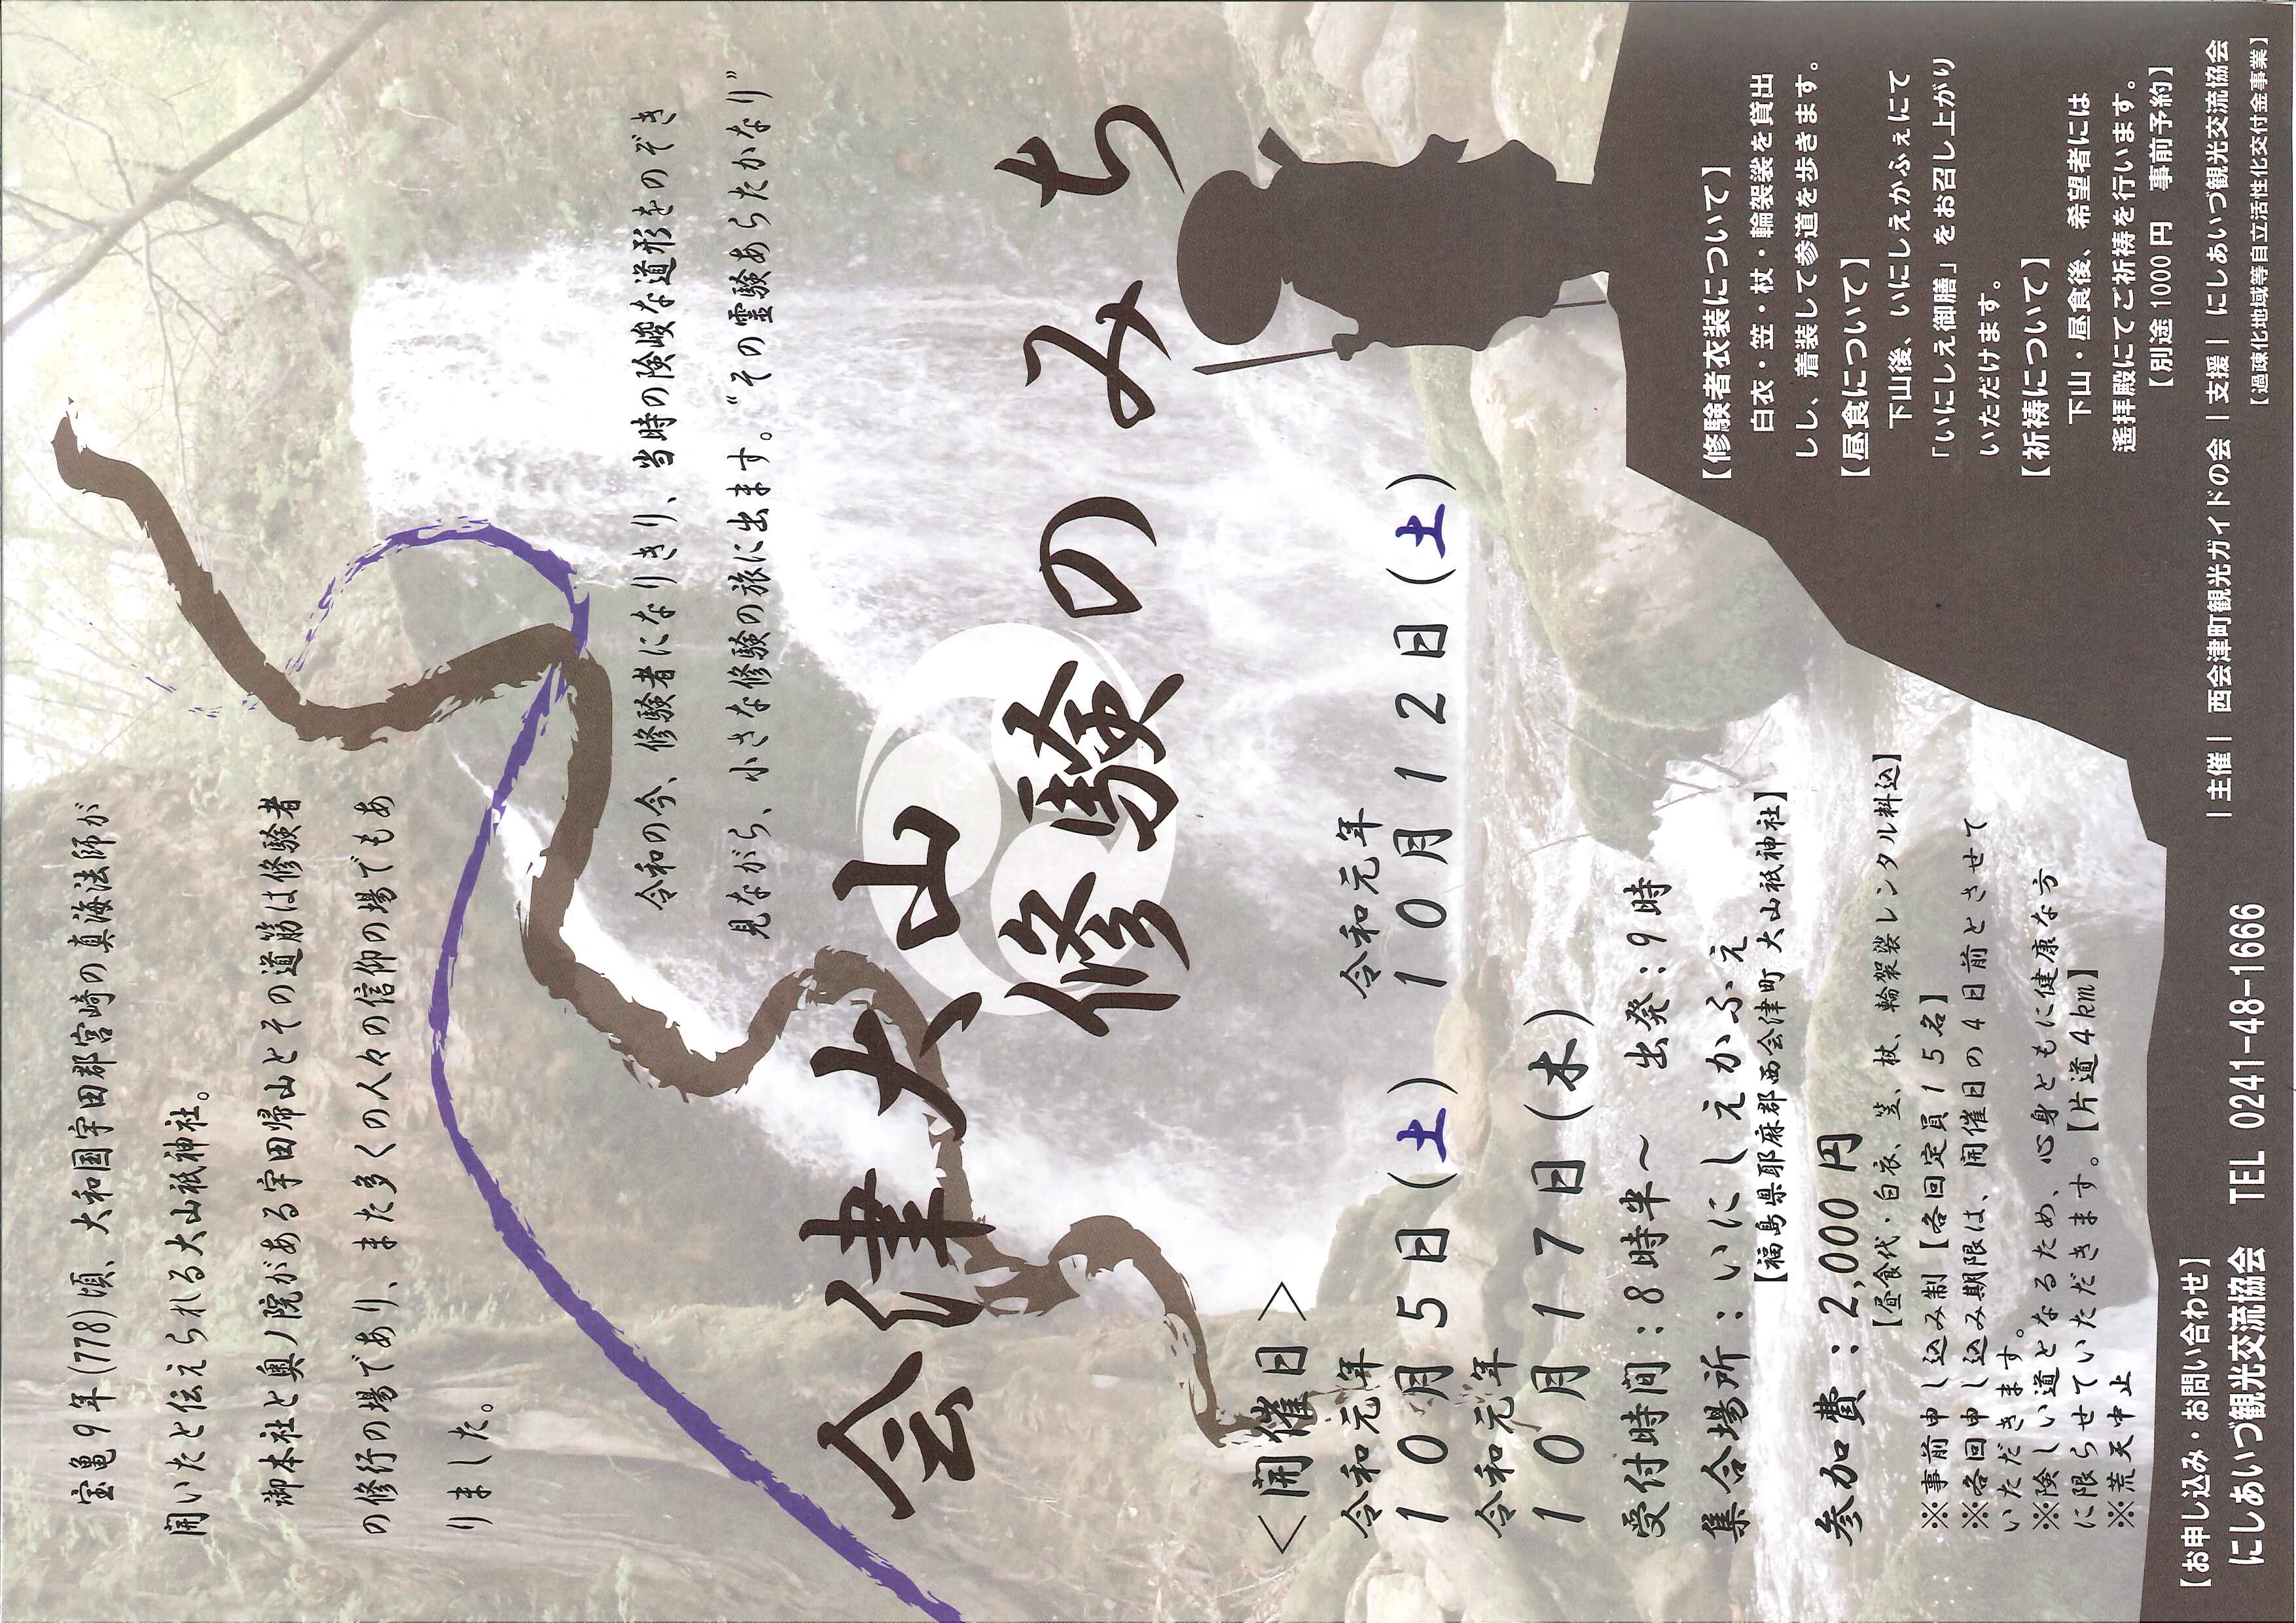 宝亀9年(778)頃、大和国宇田郡宮崎の真海法師が
開いたと伝えられる大山祇神社。
御本社と奥ノ院がある宇田帰山とその道筋は修験者
の修行の場であり、また多くの人々の信仰の場でもあ
りました。
令和の今、修験者になりきり、当時の険峻な道形をのぞき
見ながら、小さな修験の旅に出ます。“その霊験あらたかなり”
会津大山
修験のみち
＜開催日＞
令和元年
10月5日(土)
令和元年
10月12日(土)
令和元年
10月17日(木)
受付時間：8時半〜　出発：9時
集合場所：いにしえかふえ
【福島県耶麻郡西会津町 大山祇神社】
参加費：2,000円
【昼食代・白衣、笠、杖、輪袈裟レンタル料込】
※事前申し込み制【各回定員15名】
※各回申し込み期限は、開催日の4日前とさせて
いただきます。
※険しい道となるため、心身ともに健康な方
に限らせていただきます。【片道4km】
※荒天中止
【修験者衣装について】
白衣・笠・杖・輪袈裟を貸出
しし、着装して参道を歩きます。
【昼食について】
下山後、いにしえかふぇにて
「いにしえ御膳」をお召し上がり
いただけます。
【祈祷について】
下山・昼食後、希望者には
遙拝殿にてご祈祷を行います。
【別途1000円　事前予約】
【お申し込み・お問い合わせ】
にしあいづ観光交流協会　TEL 0241-48-1666
｜主催｜ 西会津町観光ガイドの会 ｜支援｜ にしあいづ観光交流協会
【過疎化地域等自立活性化交付金事業】